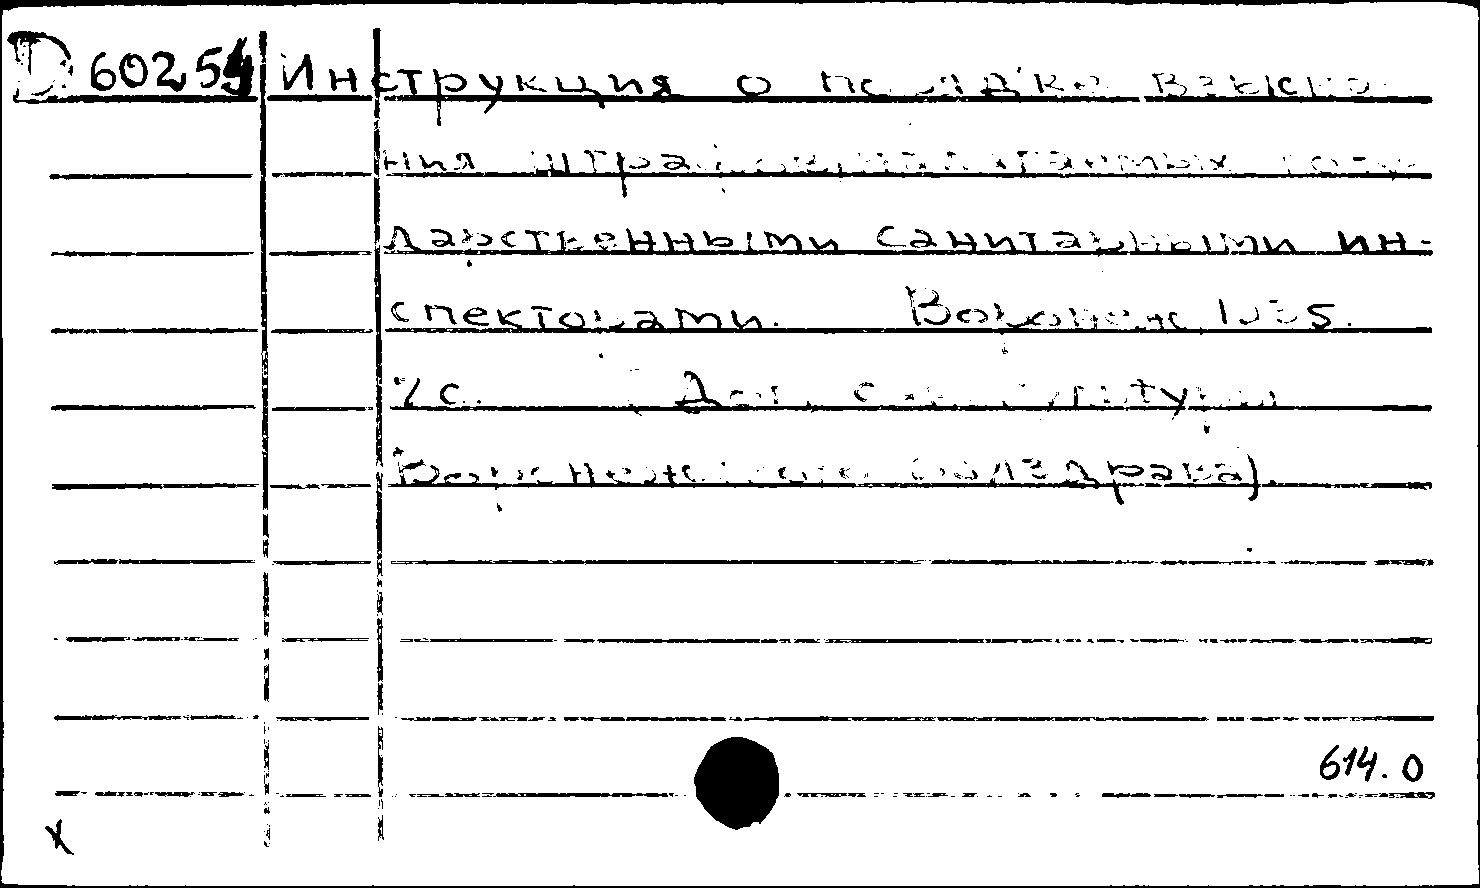 D 60254 Инструкция о порядке взыска-
ния штрафов, налагаемых госу-
дарственными санитарными ин-
спекторами. Воронеж, 1935.
2 с.
Воронежского облздрава).
614.0
х